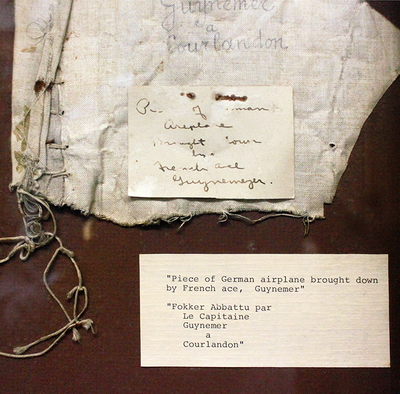 Guynemer
a
Courlandon
of
Airplane
brought down
by
French ace
Guynemeyer.
"Piece of German airplane brought down
by French ace, Guynemer"
"Fokker Abbattu par
Le Capitaine
Guynemer
a
Courlandon"